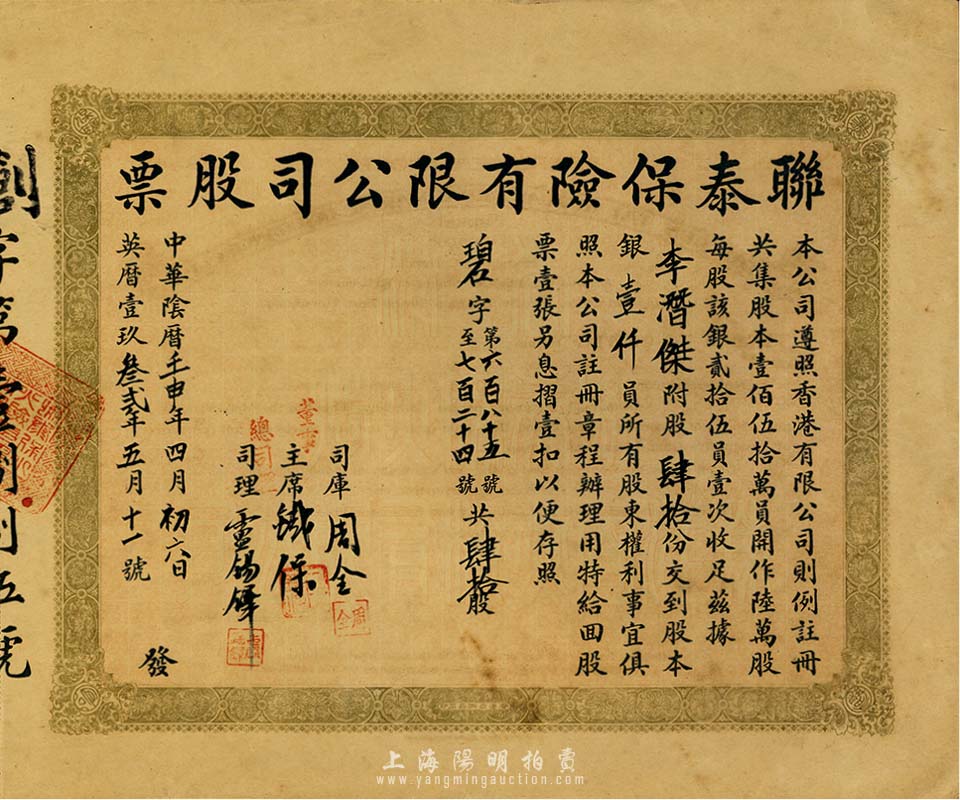 聯泰保險有限公司股票
本公司遵照香港有限公司則例註冊
共集股本壹佰伍拾萬員開作陸萬股
每股該銀貳拾伍員壹次收足茲據
李潛傑附股肆拾份交到股本
銀壹仟員所有股東權利事宜俱
照本公司註冊章程辦理用特給囬股
票壹張另息摺壹扣以便存照
碧字第六百八十五號至七百二十四號共肆拾股
司庫周全
董事
主席
總司理
司理
中華陰曆壬申年四月初六日
英曆壹玖叁弍年五月十一號
發
字第
伍號
上海陽明拍賣
www.yangmingauction.com